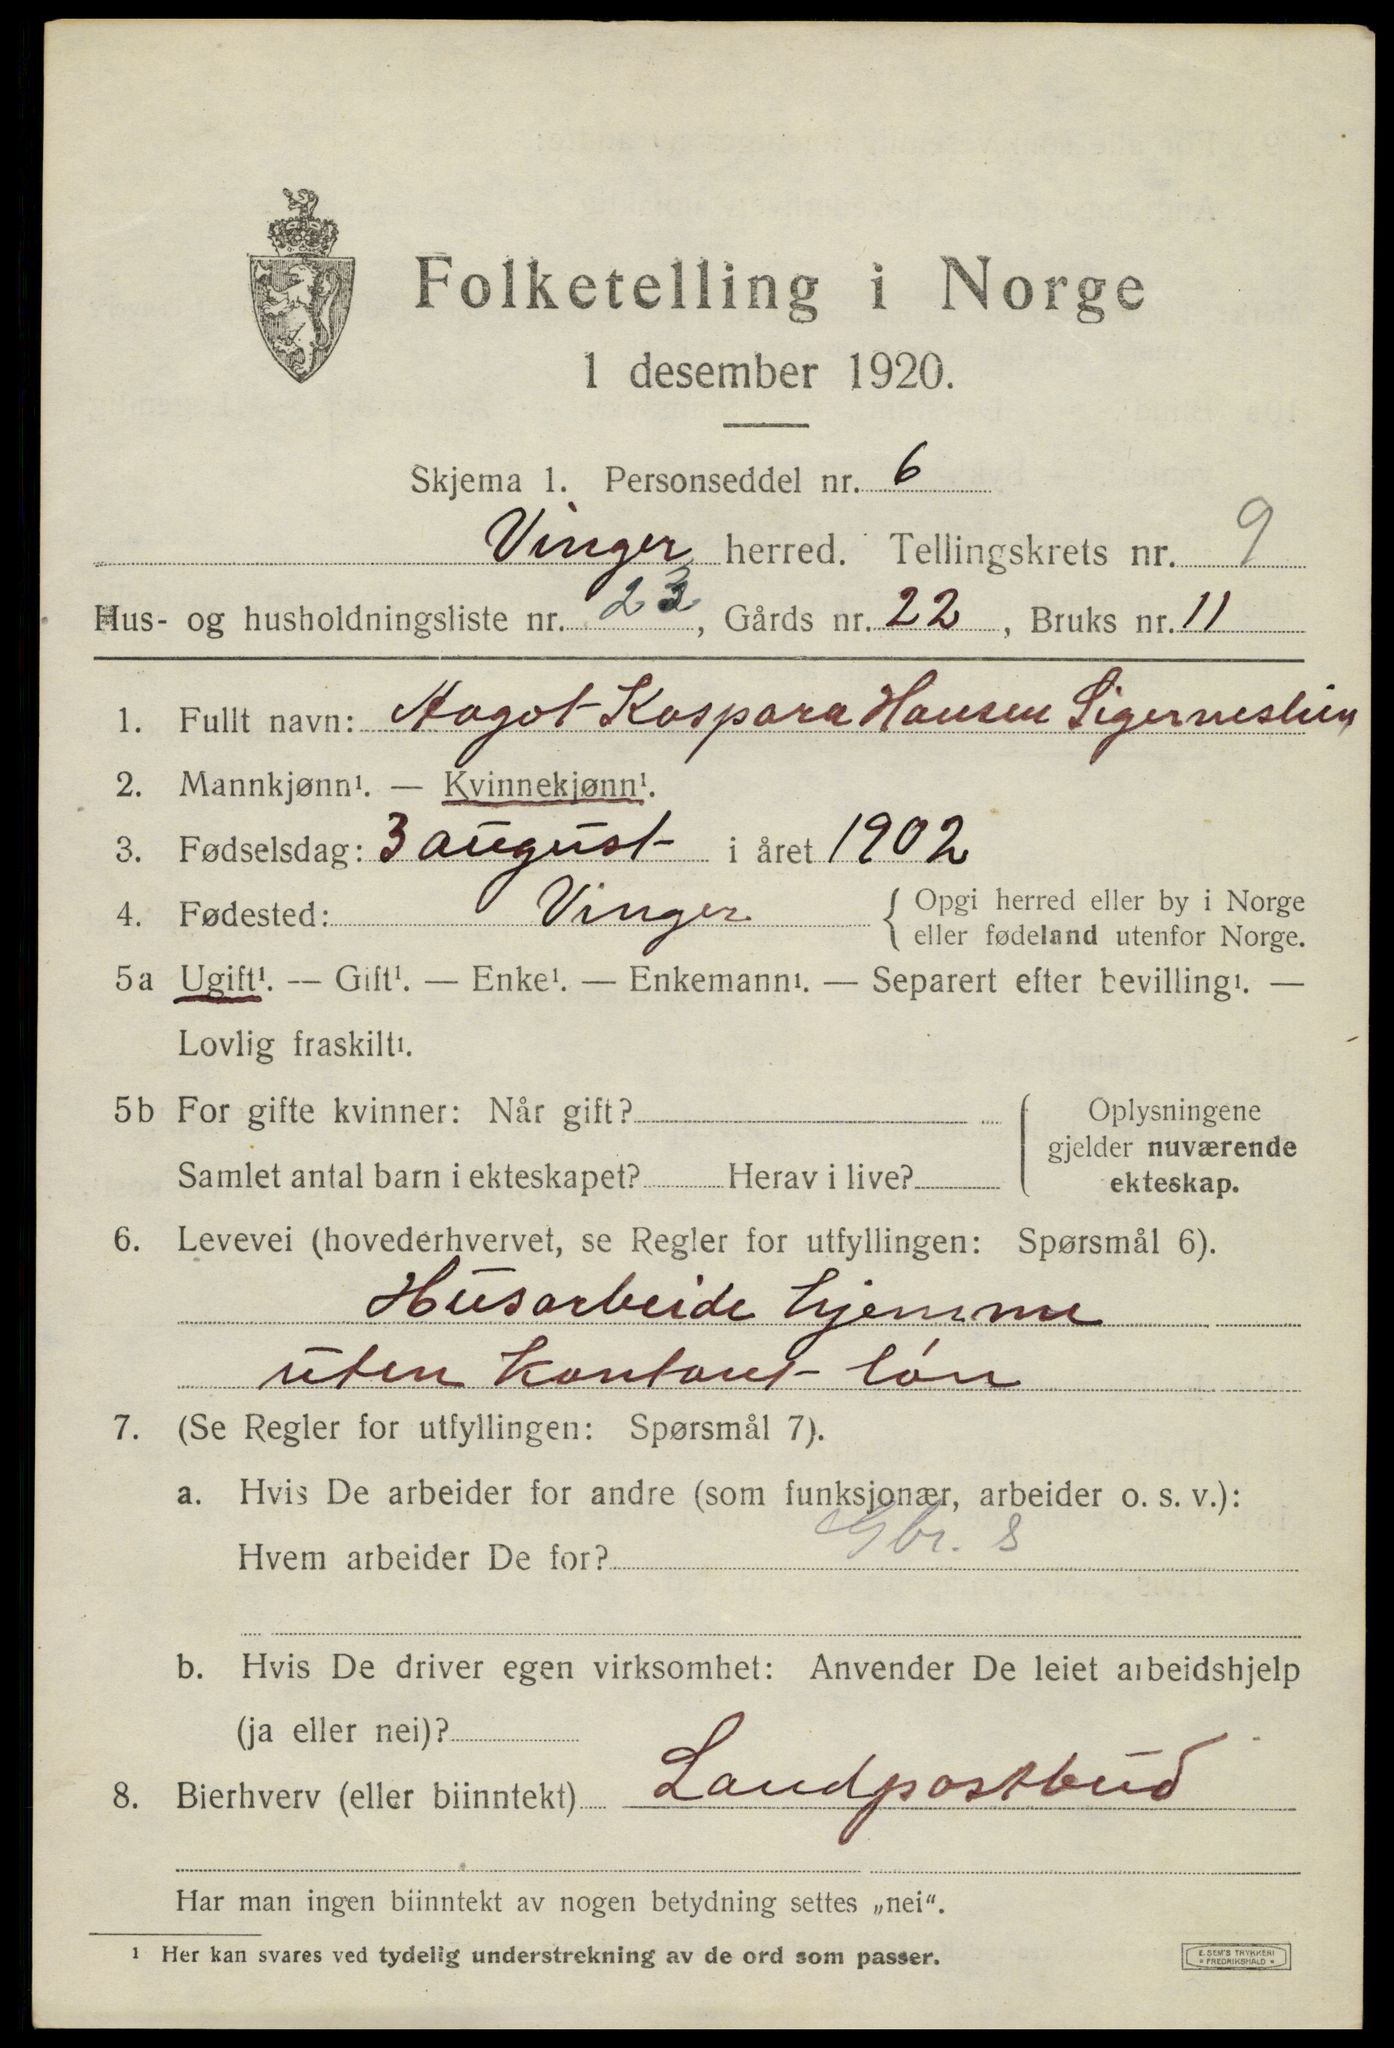 Folketelling i Norge
1 desember 1920.
Skjema 1. Personseddel nr. 6
Vinger herred. Tellingskrets nr. 9
Hus- og husholdningsliste nr. 23, Gårds nr. 22, Bruks nr. 11
1. Fullt navn: Aagot Kaspara Hansen Sigerneslien
2. Mannkjønn¹. — Kvinnekjønn¹.
3. Fødselsdag: 3 august i året 1902
4. Fødested: Vinger { Opgi herred eller by i Norge
eller fødeland utenfor Norge.
5a Ugift¹. — Gift¹. — Enke¹. — Enkemann¹. — Separert efter bevilling¹. —
Lovlig fraskilt¹.
5b For gifte kvinner: Når gift?
Samlet antal barn i ekteskapet? Herav i live?
Oplysningene
gjelder nuværende
ekteskap.
6. Levevei (hovederhvervet, se Regler for utfyllingen: Spørsmål 6).
Husarbeide hjemme
uten kontant løn
7. (Se Regler for utfyllingen: Spørsmål 7).
a. Hvis De arbeider for andre (som funksjonær, arbeider o. s. v.):
Hvem arbeider De for? Gbr. s
b. Hvis De driver egen virksomhet: Anvender De leiet arbeidshjelp
(ja eller nei)?
8. Bierhverv (eller biinntekt) Landpostbud
Har man ingen biinntekt av nogen betydning settes „nei".
¹ Her kan svares ved tydelig understrekning av de ord som passer.
E. SEM'S TRYKKERI
FREDRIKSHALD